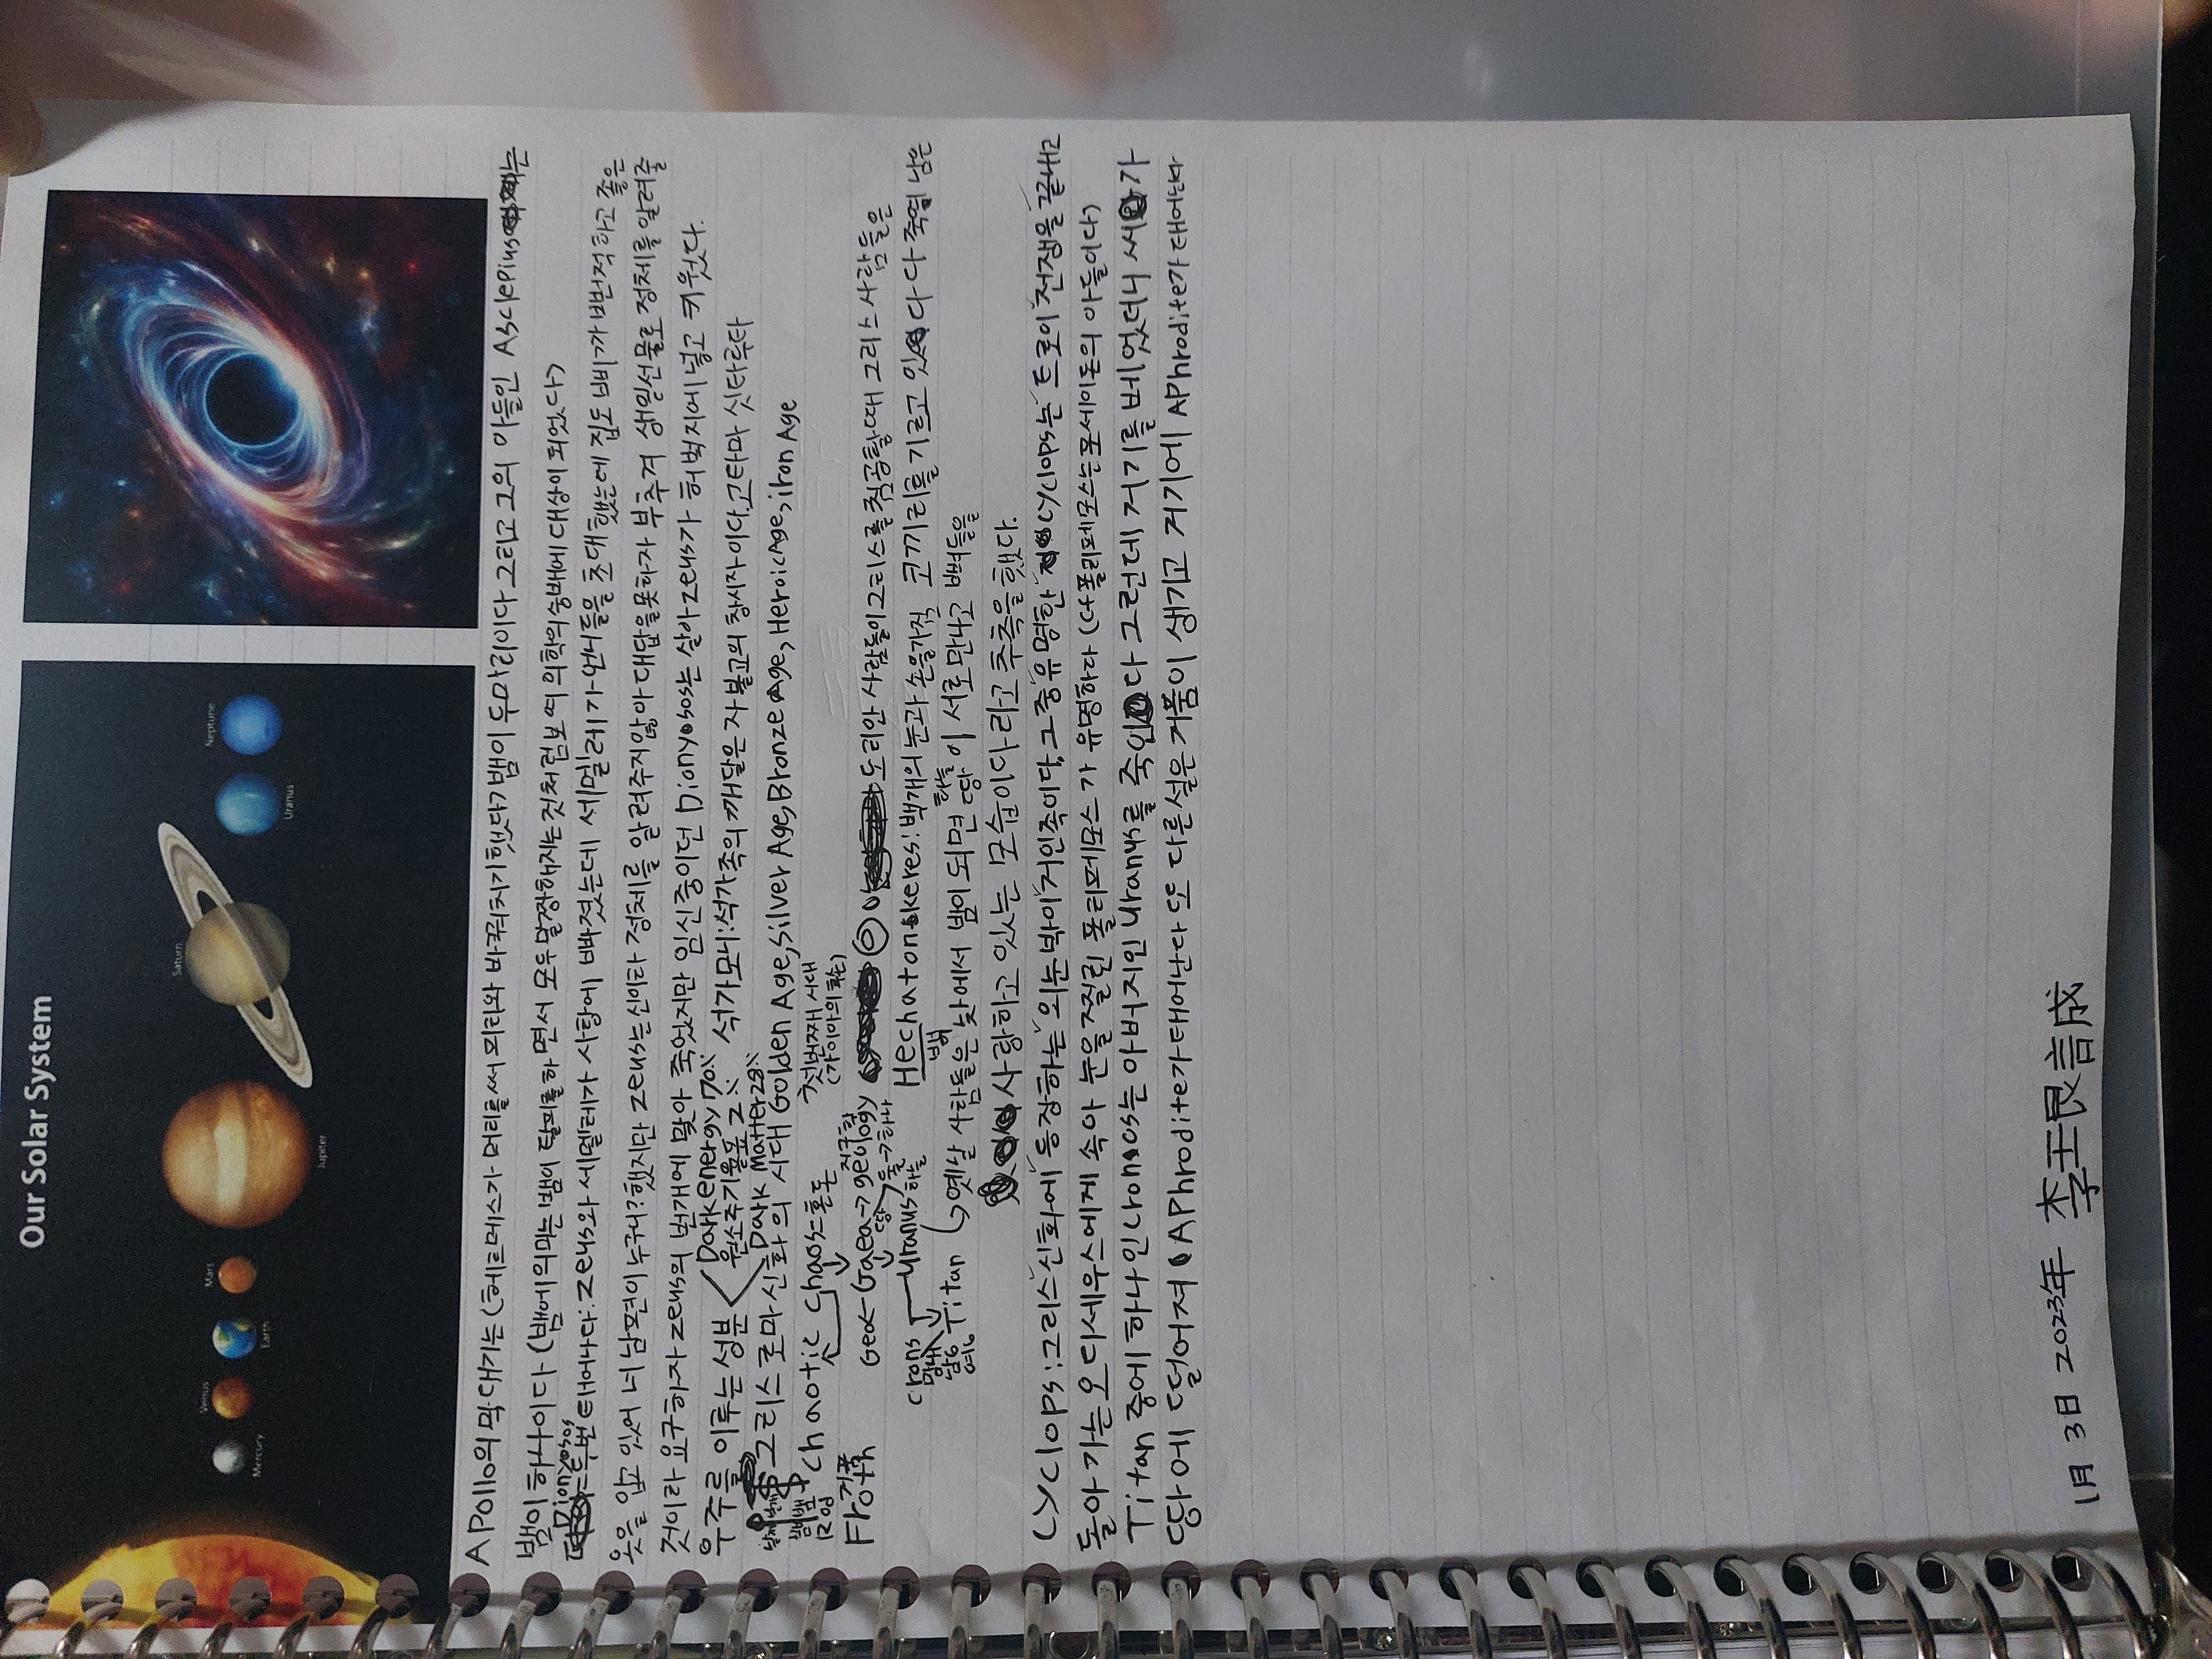 Our Solar System
Mercury
Venus
Earth
Mars
Jupiter
Saturn
Uranus
Neptune
APollo의 막대기는 (헤르메스가 머리를써 피리와 바꿔치기했다) 뱀이 두마리이다 그리고 그의 아들인 Asclepius는
뱀이 하나이다 (뱀에의미는 뱀이 탈피를 하면서 모두 말짱해지는 것처럼 보여 의학의 숭배에 대상이 되었다)
Dionyosos
두번 태어나다: Zeus와 세멜레가 사랑에 빠졌는데 세멜레가 언니들을 초대했는데 집도 삐까번쩍하고 좋은
옷을 입고 있어 네 남편이 누구니? 했지만 Zeus는 신이라 정체를 알려주지않아 대답을못하자 부추겨 생일선물로 정체를 알려줄
것이라 요구하자 Zeus의 번개에 맞아 죽었지만 임신중이던 Dionyosos는 살아 Zeus가 허벅지에 넣고 키웠다.
우주를 이루는 성분
Dark energy 70%
원소주기율표 2%
Dark Matter 28%
석가모니: 석가족의 깨달은 자 불교의 창시자이다. 고타마 싯다르타
그리스 로마 신화의 시대 Golden Age, Silver Age, Bronze Age, Heroic Age, iron Age
Chaotic
Chaos=혼돈
첫번째 시대
(가이아의 후손)
거품
Froth
Geo← Gaea→ geology
지구학
땅
도리안 사람들이 그리스를 침공할때 그리스 사람들은
Uranus 하늘
Hechatonkeres: 백개의 눈과 손을가진 코끼리를 기르고 있다 다 죽고 남은
백
Titan
옛날 사람들은 낮에서 밤이 되면 땅이 서로 만나고
하늘
사랑하고 있는 모습이다라고 추측을 했다.
Cyclops: 그리스 신화에 등장하는 외눈박이 거인족이다. 그중 유명한 Cyclops는 트로이 전쟁을 끝내고
돌아가는 오디세우스에게 속아 눈을 찔린 폴리페모스가 유명하다 (다 폴리페모스는 포세이돈의 아들이다)
Titan 중에 하나인 Cronos는 아버지인 Uranus를 죽인다 그런데 거기를 베었더니 씨가
땅에 떨어져 APhrodite가 태어난다 또 다른 설은 거품이 생기고 거기에 APhrodite가 태어난다
1月 3日 2023年 李珢誠